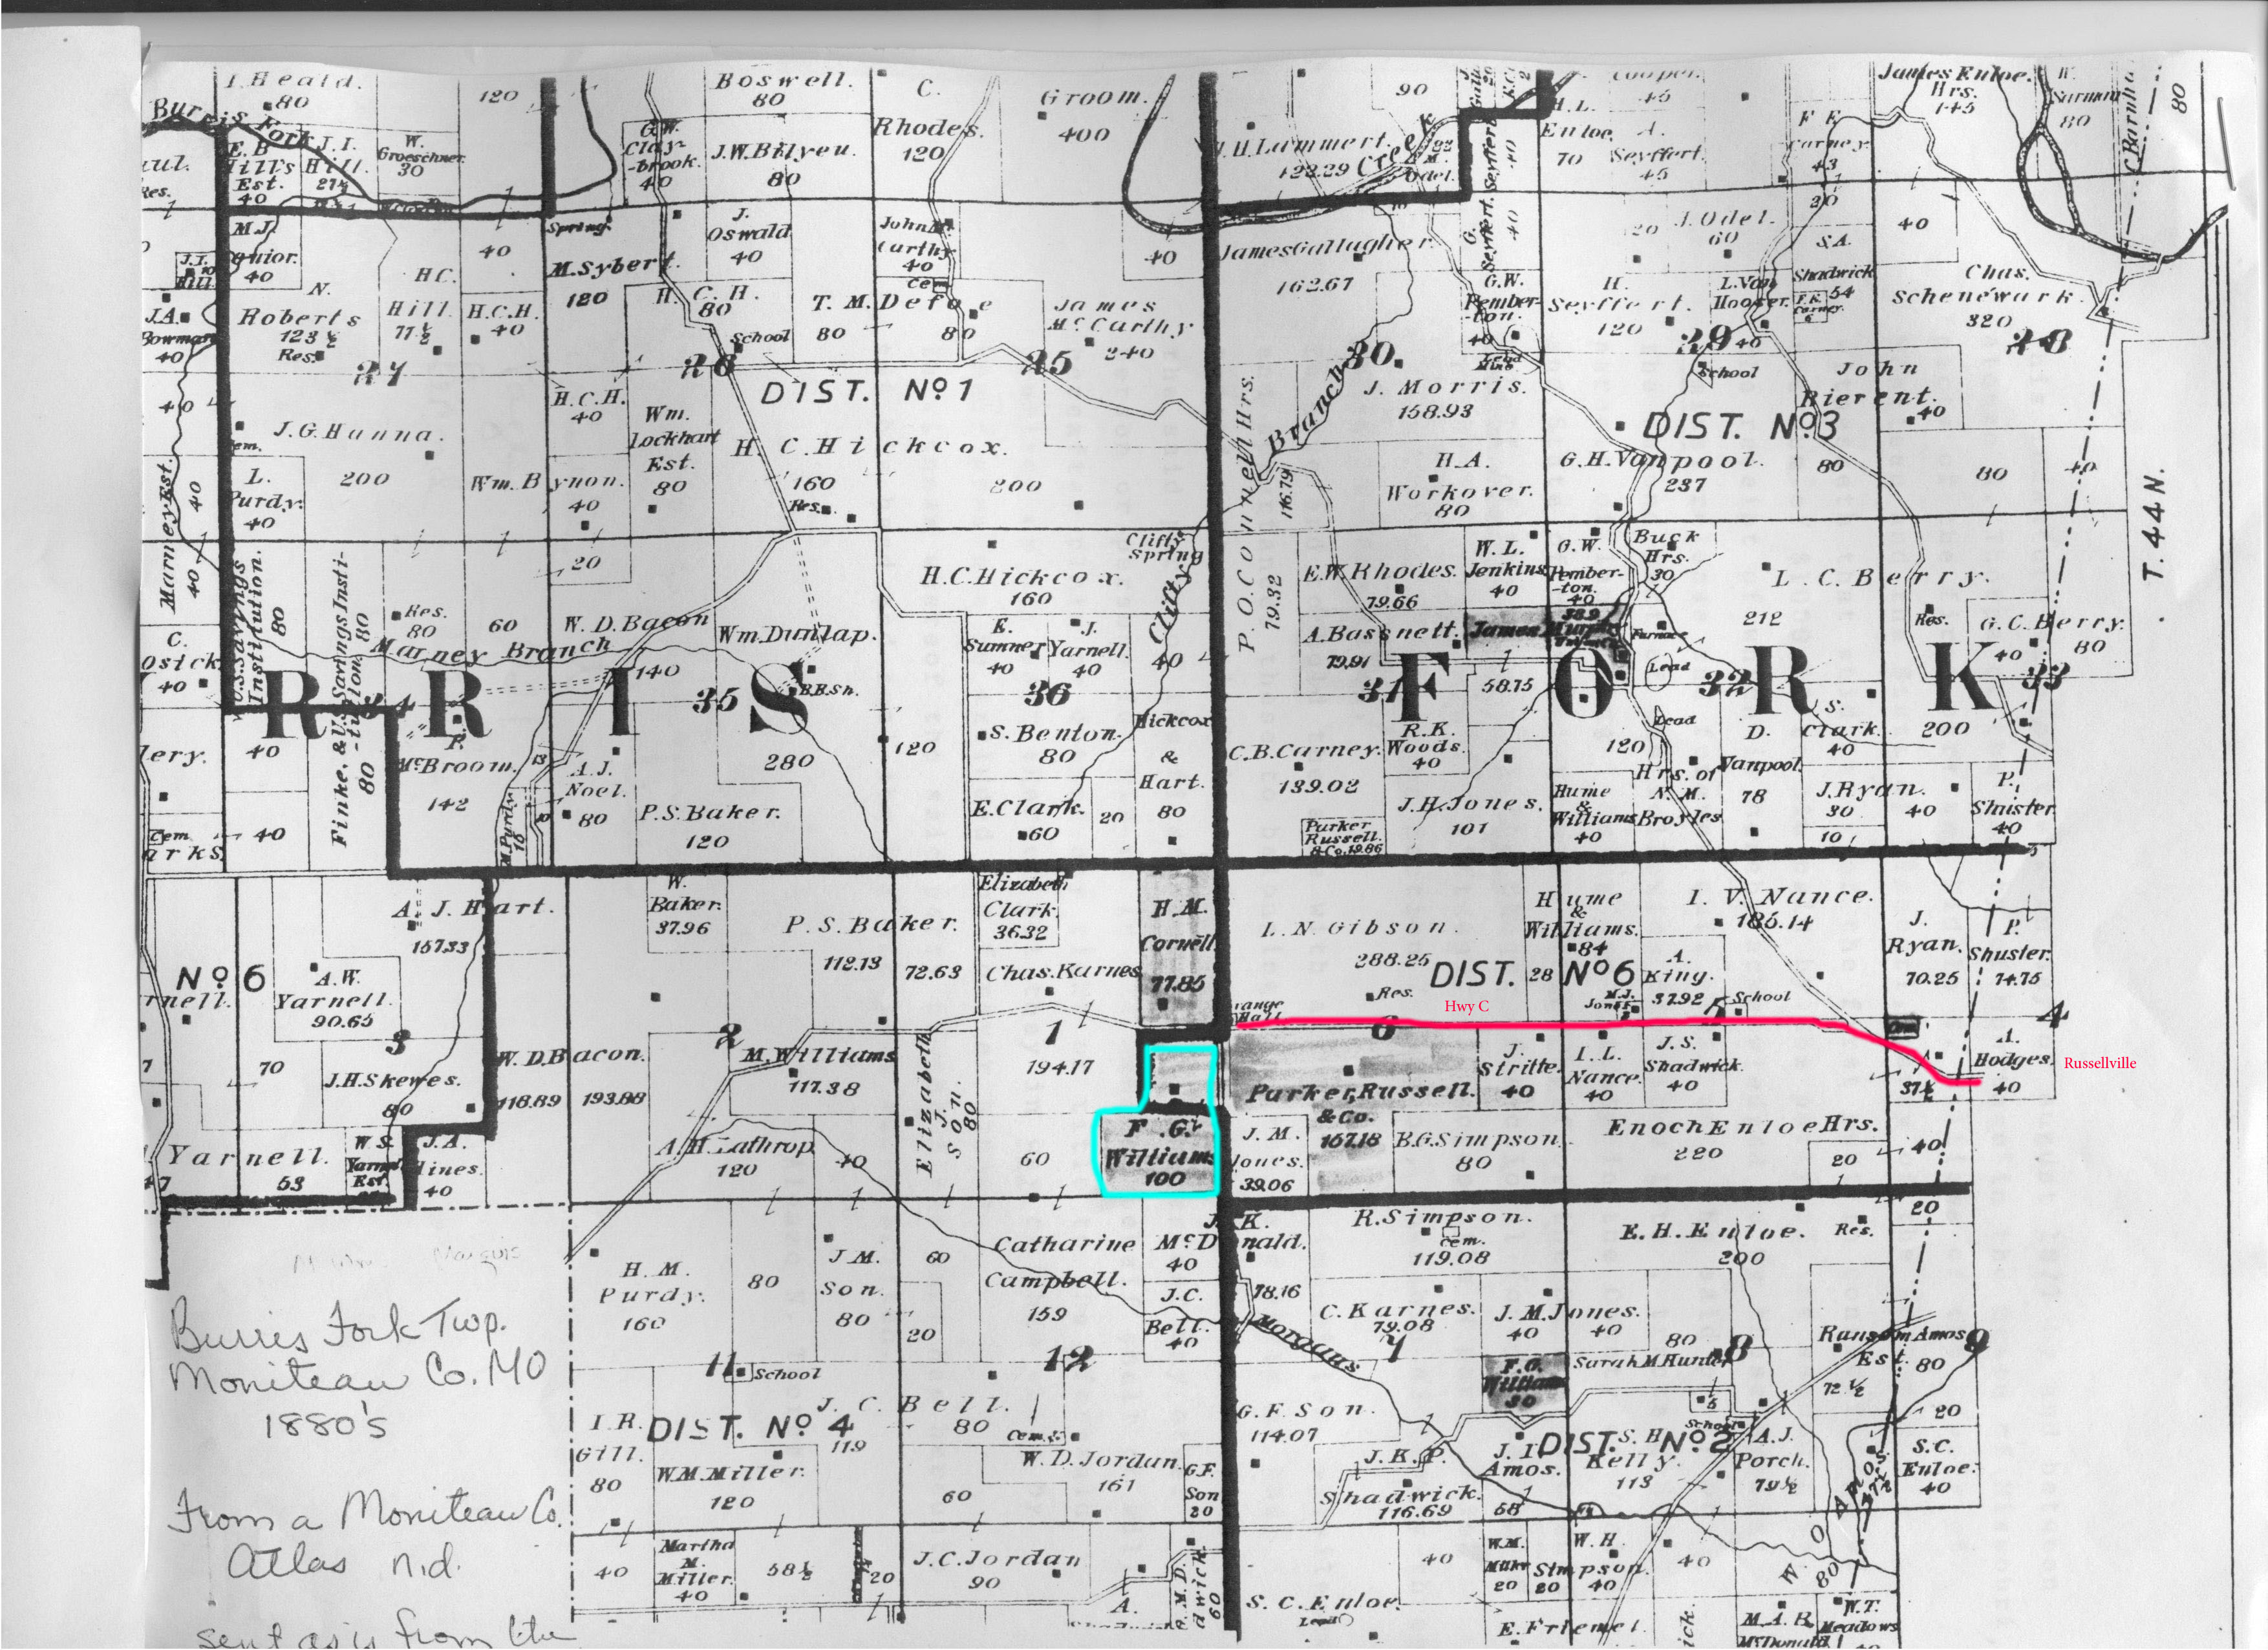 I. Heald.
80
120
Boswell.
80
C.
Rhodes.
120
Groom.
400
90
Cooper.
45
James Enloe.
Hrs.
145
80
Burris Fork
E.B.
Hill's
Est.
40
J.I.
Hill.
27½
W.
Groeschner.
30
G.W.
Clay-
-brook.
40
J.W. Bilyeu.
80
J.H. Lammert.
122.29
Creek
H.L.
Enloe.
70
A.
Seyffert.
45
F E
Carney.
43
20
C. Barnha
80
aul.
Res.
M.J.
40
J.I.
Hill
40
H.C.
Hill.
77½
Spring.
M. Sybert.
120
J.
Oswald
40
John
Carthy
40
Cem
40
James Gallagher.
162.67
G.
Seyffert.
40
20
J. Odel.
60
S.A.
Shadwick
54
40
Chas.
Schenewark.
320
28
J.A.
Bowman
40
N.
Roberts
123½
Res.
27
H.C.H.
40
H. C. H.
80
School
26
T. M. Defoe
80
80
James
McCarthy
240
25
30.
G.W.
Pember-
-ton.
40
Lead
Mine
H.
Seyffert.
120
L. Van
Hooser.
29
40
School
F.E.
Carney.
6
John
Bierent.
40
DIST. No 1
J. Morris.
158.93
Branch
DIST. No 3
T. 44 N.
40
Cem.
J.G. Hanna.
200
H.C.H.
40
Wm.
Lockhart
Est.
80
H. C. Hickcox.
160
Res.
200
P. O. Connell Hrs.
116.79
H.A.
Workover.
80
G.H. Vanpool.
237
80
80
40
Marney Est.
40
40
L.
Purdy.
40
Wm. Bynon.
40
20
Clifty
Spring
H.C. Hickcox.
160
79.32
E.W. Rhodes.
79.66
W. L.
Jenkins
40
G.W.
Pember-
-ton.
40
Buck
Hrs.
30
L. C. Berry.
212
Res.
G. C. Berry.
40
80
U.S. Savings
Institution.
80
Finke. & U.S. Savings Insti-
-tution. 80
80
Res.
80
60
W. D. Bacon
140
Marney Branch
Wm. Dunlap.
B.B. Sh.
E.
Sumner
40
J.
Yarnell.
40
Clifty
40
A. Bassnett.
79.91
James Murphy
38.9
Furnace
Lead
C.
Osick.
40
R R I S
F O R K
34
35
36
31
32
33
58.75
lery.
40
P.
McBroom.
142
13
A. J.
Noel.
80
280
120
S. Benton.
80
Hickcox
&
Hart.
80
C.B. Carney.
139.02
R.K.
Woods.
40
Lead
120
D.
Vanpool.
78
S.
Clark.
40
200
Cem
arks.
40
M. Purdy
10
10
P.S. Baker.
120
E. Clark.
60
20
Parker
Russell.
& Co. 19.86
J.H. Jones.
101
Hume
&
Williams
40
Hrs. of
N. M.
Broyles
J. Ryan.
30
10
40
P.
Shuster
40
A. J. Hart.
157.33
W.
Baker.
37.96
P. S. Baker.
112.13
72.63
Elizabeth
Clark.
36.32
H.M.
Cornell
77.85
L. N. Gibson.
288.25
Res.
Hume
&
Williams.
84
28
I. V. Nance.
185.14
J.
Ryan.
70.25
P.
Shuster.
74.75
No 6
rnell.
A.W.
Yarnell.
90.65
Chas. Karnes
DIST. No 6
A.
King.
37.92
M.J.
Jones
School
range
Hall
Hwy C
6
5
4
3
2
1
70
J.H. Skewes.
80
W. D. Bacon.
118.89
193.88
M. Williams
117.38
194.17
Parker, Russell.
& Co.
157.18
J.
Stritte.
40
I. L.
Nance.
40
J.S.
Shadwick.
40
Cem
37½
A.
Hodges.
40
Russellville
Yarnell.
53
W S.
Yarnel
Est.
J.A.
Hines.
40
A.H. Lathrop
120
40
Elizabeth
J. Son.
80
60
F. G.
Williams
100
J. M.
Jones.
39.06
B.G. Simpson.
80
Enoch Enloe Hrs.
220
20
40
H. M.
Purdy.
160
80
J.M.
Son.
80
60
20
Catharine
Campbell.
159
J. K.
McDonald.
40
78.16
J.C.
Bell.
40
R. Simpson.
Cem.
119.08
E. H. Enloe.
200
Res.
20
Burris Fork Twp.
Moniteau Co. MO
1880's
11
School
12
Morgans
C. Karnes.
79.08
7
J. M. Jones.
40
40
80
8
Ransom Amos
Est.
72½
80
9
F. G.
Williams
30
Sarah M. Hunter
5
School
I. R.
Gill.
80
DIST. No 4
J. C. Bell.
119
80
Cem.
G. F. Son.
114.07
J. K. P.
Shadwick.
116.69
DIST. No 2
J. I.
Amos.
58
S. H
Kelly.
113
A.J.
Porch.
79½
20
S.C.
Enloe.
40
W. O. Amos.
47½
80
W.M. Miller.
120
60
W. D. Jordan.
161
G.F.
Son
20
From a Moniteau Co.
Atlas n.d.
40
Martha
M.
Miller.
40
58½
20
J.C. Jordan
90
A.
A. M. D.
adwick.
60
S. C. Enloe.
Lead
40
W.M.
20
W. H.
Simpson.
20
40
40
E. Friemel.
M. A. B.
McDonald
W.T.
Meadows
sent as is from the